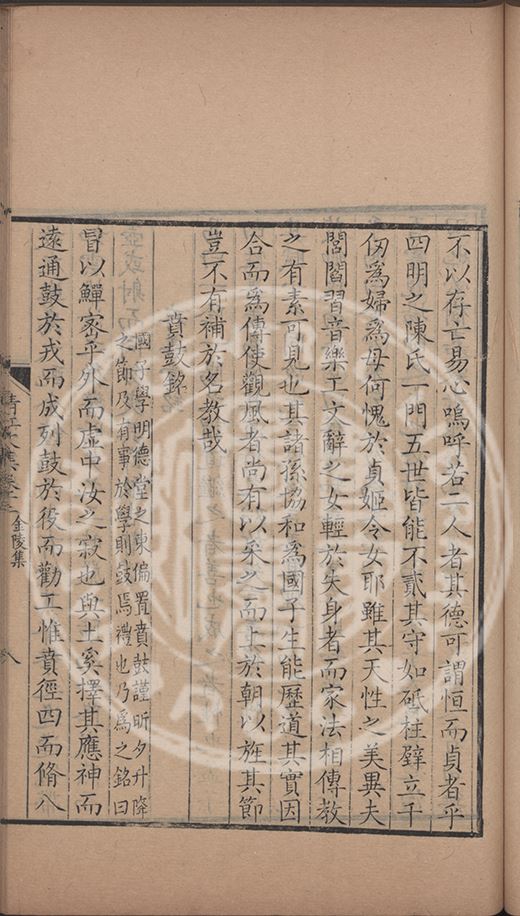 不以存亡易心嗚呼若二人者其德可謂恒而貞者乎
四明之陳氏一門五世皆能不貳其守如砥柱壁立千
仞爲婦爲母何愧於貞姬令女耶雖其天性之美異夫
閭閻習音樂工文辭之女輕於失身者而家法相傳教
之有素可見也其諸孫協和爲國子生能歷道其實因
合而爲傳使觀風者尚有以采之而上於朝以旌其節
豈不有補於名教哉
賁鼓銘
國子學明德堂之東偏置賁鼓謹昕夕升降
之節及有事於學則鼓焉禮也乃爲之銘曰
冒以鱓密乎外而虛中汝之寂也與土奚擇其應神而
遠通鼓於戎而成列鼓於役而勸工惟賁徑四而脩八
金陵集
八